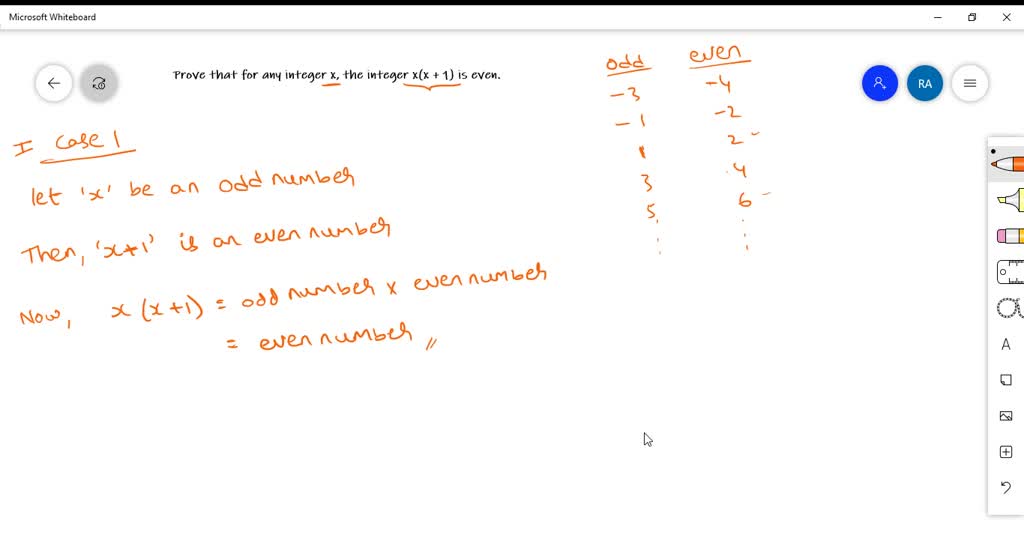 Microsoft Whiteboard
Prove that for any integer x, the integer x(x + 1) is even.
RA
odd even
-3 -4
-1 -2
1 2
3 4
5 6
I Case 1
let 'x' be an odd number
Then, 'x+1' is an even number
Now, x (x+1) = odd number x even number
= even number //
A